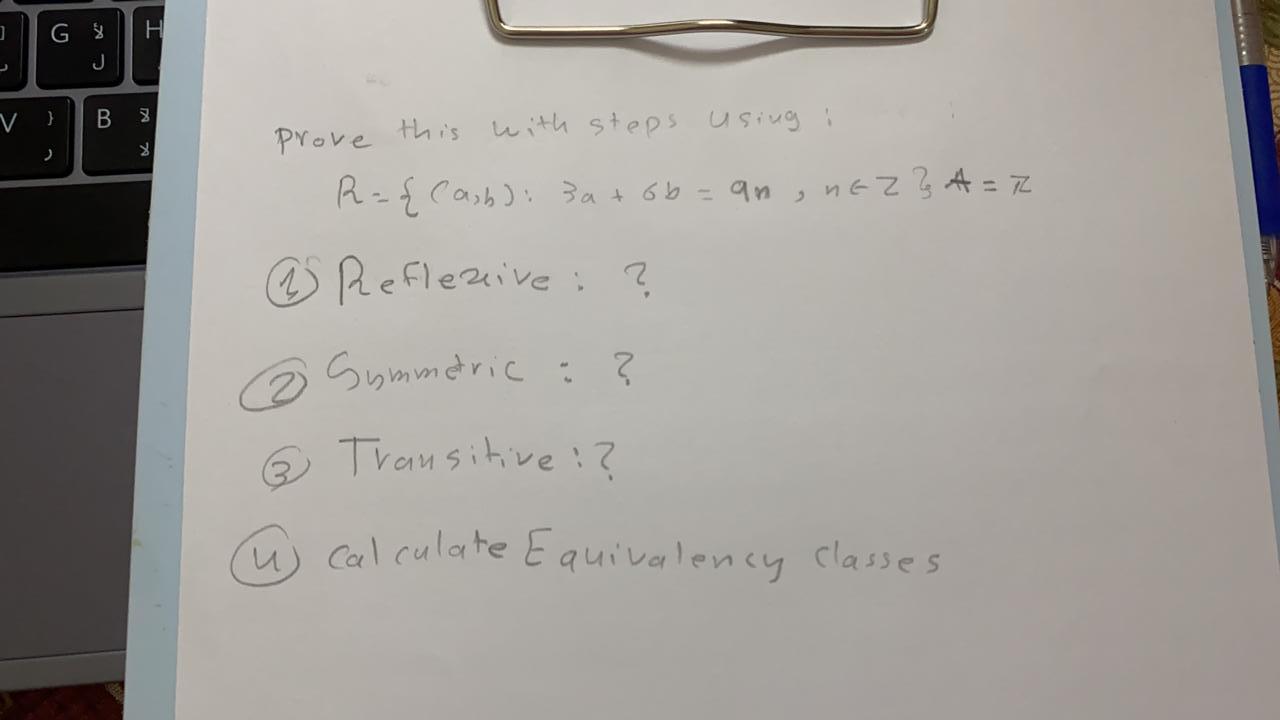 G لا ل
H
V } ,
B لا
Prove this with steps using :
R = { (a,b) : 3a + 6b = 9n , n ∈ Z } A = Z
① Reflexive : ?
② Symmetric : ?
③ Transitive : ?
④ Calculate Equivalency classes